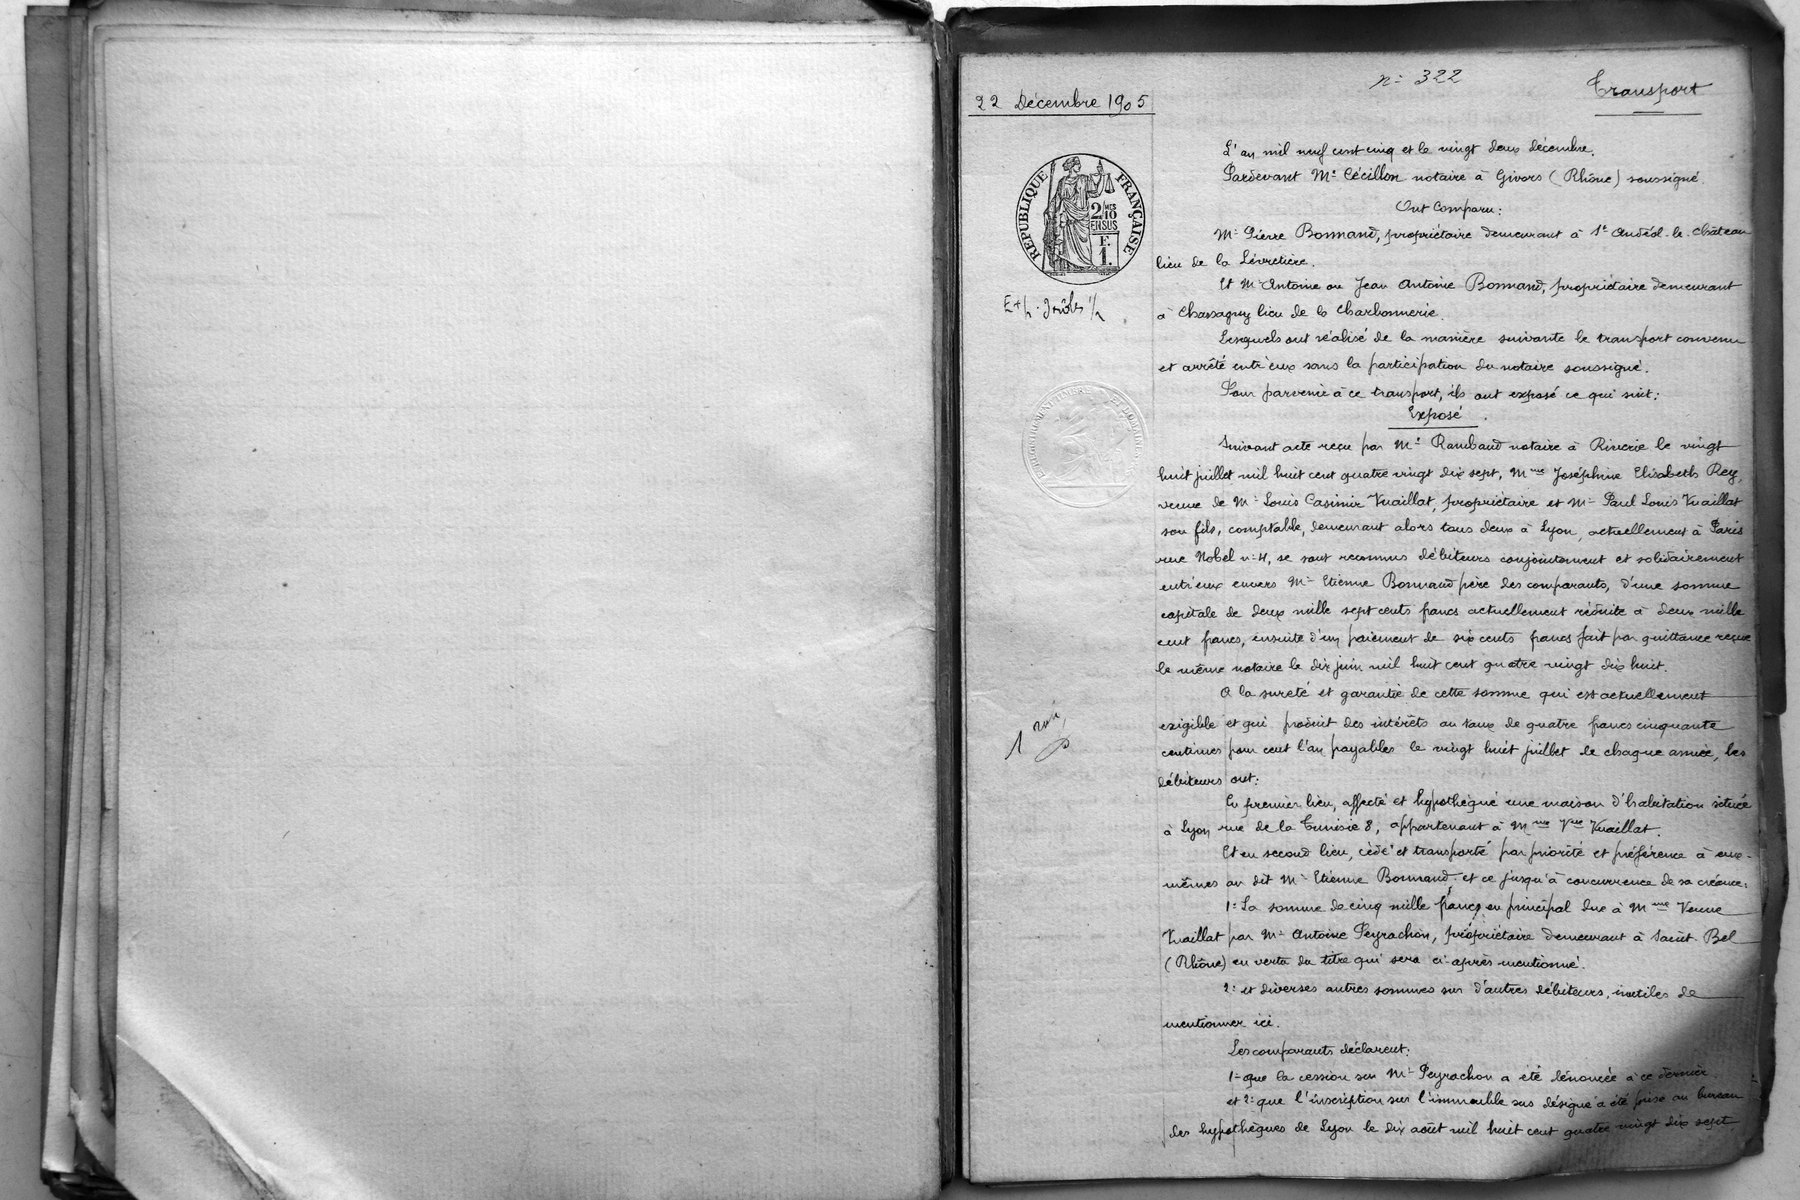 n° 322
Transport
22 Décembre 1905
L'an mil neuf cent cinq et le vingt deux décembre.
Pardevant Me Cécillon notaire à Givors (Rhône) soussigné.
Ont Comparu:
RÉPUBLIQUE FRANÇAISE
2/10 MES
EN SUS
F.
1.
Mr Pierre Bonnand, propriétaire demeurant à St Andéol-le-château
lieu de la Lévretière.
Et Mr Antoine ou Jean Antoine Bonnand, propriétaire demeurant
à Chassagny lieu de la Charbonnerie.
Lesquels ont réalisé de la manière suivante le transport convenu
et arrêté entr'eux sans la participation du notaire soussigné.
Pour parvenir à ce transport, ils ont exposé ce qui suit:
Exposé
ENREGISTREMENT TIMBRE ET DOMAINES
Suivant acte reçu par Me Rambaud notaire à Riverie le vingt
huit juillet mil huit cent quatre vingt dix sept, Mme Joséphine Elisabeth Rey,
veuve de Mr Louis Casimir Vuaillat, propriétaire et Mr Paul Louis Vuaillat
son fils, comptable, demeurant alors tous deux à Lyon, actuellement à Paris
rue Nobel n° 4, se sont reconnus débiteurs conjointement et solidairement
entr'eux envers Mr Etienne Bonnand père des comparants, d'une somme
capitale de deux mille sept cents francs actuellement réduite à deux mille
cent francs, ensuite d'un paiement de six cents francs fait par quittance reçue
le même notaire le dix juin mil huit cent quatre vingt dix huit.
A la sureté et garantie de cette somme qui est actuellement
exigible et qui produit des intérêts au taux de quatre francs cinquante
centimes pour cent l'an payables le vingt huit juillet de chaque année, les
débiteurs ont:
En premier lieu, affecté et hypothéqué une maison d'habitation située
à Lyon rue de la Tunisie 8, appartenant à Mme Vve Vuaillat.
Et en second lieu, cédé et transporté par priorité et préférence à eux-
mêmes au dit Mr Etienne Bonnand et ce jusqu'à concurrence de sa créance:
1° La somme de cinq mille francs en principal due à Mme Veuve
Vuaillat par Mr Antoine Peyrachon, propriétaire demeurant à Saint Bel
(Rhône) en vertu du titre qui sera ci-après mentionné.
2° et diverses autres sommes sur d'autres débiteurs, inutiles de
mentionner ici.
Les comparants déclarent:
1° que la cession sur Mr Peyrachon a été dénoncée à ce dernier
et 2° que l'inscription sur l'immeuble sus désigné a été prise au bureau
des hypothèques de Lyon le dix août mil huit cent quatre vingt dix sept